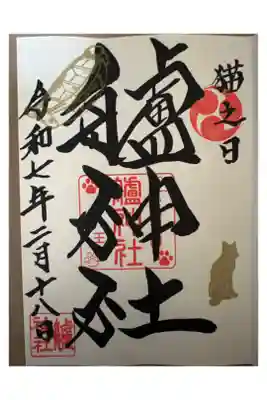 猫之日
艫神社
艫神社
令和七年二月十八日
艫神社